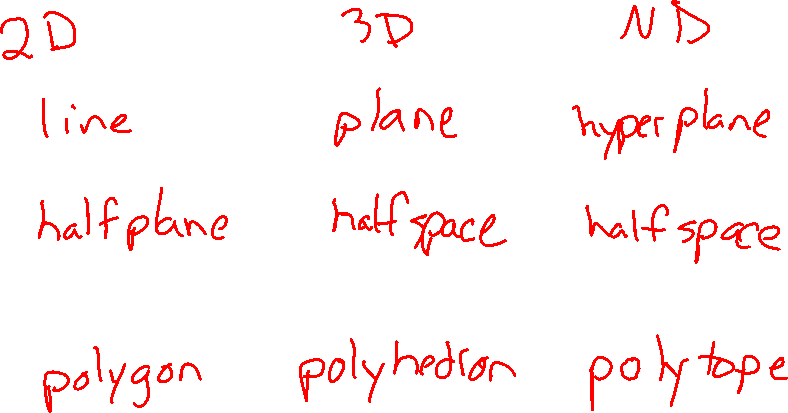 2D 3D ND
line plane hyperplane
halfplane halfspace halfspace
polygon polyhedron polytope